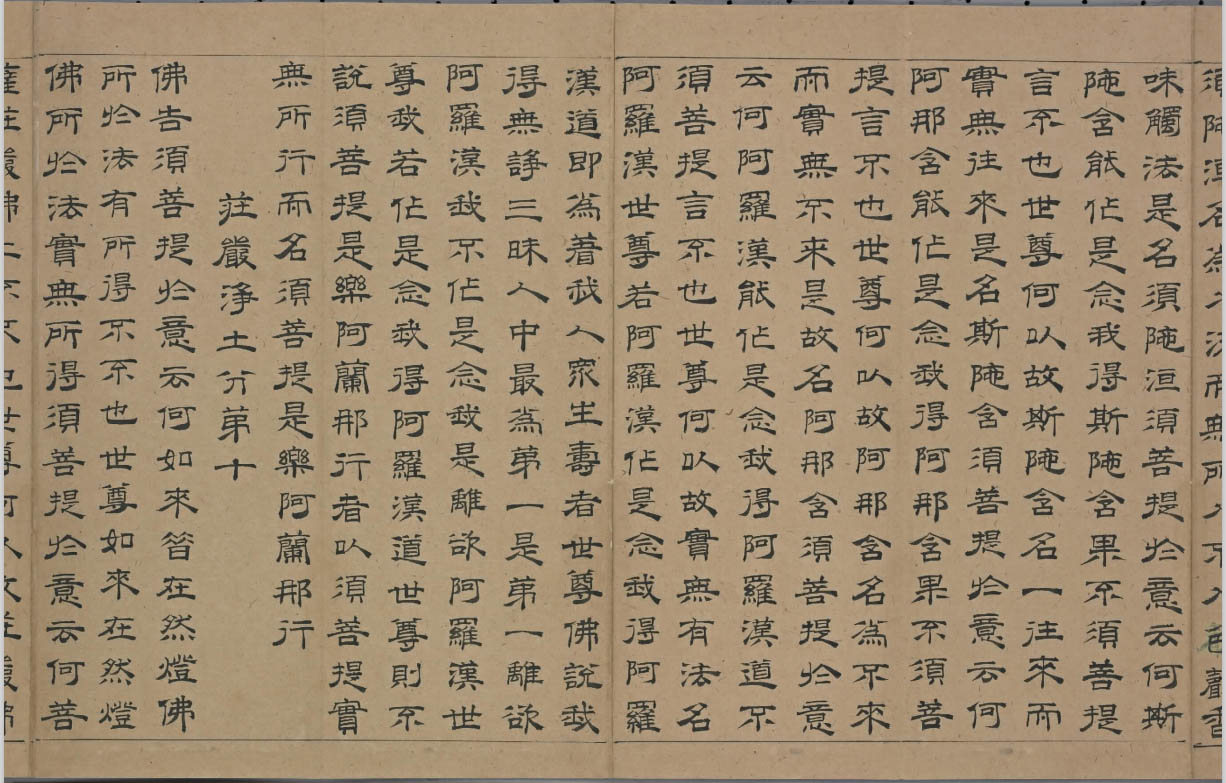 須陁洹名為入流而無所入不入色聲香
味觸法是名須陁洹須菩提於意云何斯
陁含能作是念我得斯陁含果不須菩提
言不也世尊何以故斯陁含名一往來而
實無往來是名斯陁含須菩提於意云何
阿那含能作是念我得阿那含果不須菩
提言不也世尊何以故阿那含名為不來
而實無不來是故名阿那含須菩提於意
云何阿羅漢能作是念我得阿羅漢道不
須菩提言不也世尊何以故實無有法名
阿羅漢世尊若阿羅漢作是念我得阿羅
漢道即為着我人眾生壽者世尊佛說我
得無諍三昧人中最為第一是第一離欲
阿羅漢我不作是念我是離欲阿羅漢世
尊我若作是念我得阿羅漢道世尊則不
說須菩提是樂阿蘭那行者以須菩提實
無所行而名須菩提是樂阿蘭那行
莊嚴淨土分第十
佛告須菩提於意云何如來昔在然燈佛
所於法有所得不不也世尊如來在然燈
佛所於法實無所得須菩提於意云何菩
薩莊嚴佛土不不也世尊何以故莊嚴佛